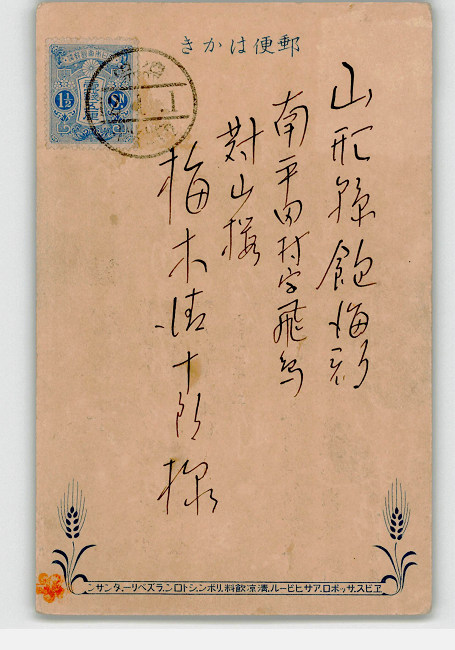 きかは便郵
山形縣飽海郡
南平田村字飛鳥
對山樓
梅木清十郎様
ヱビス、サッポロ、アサヒビール、清凉飲料、リボン、シトロン、ラズベリー、タンサン
1½ Sn.